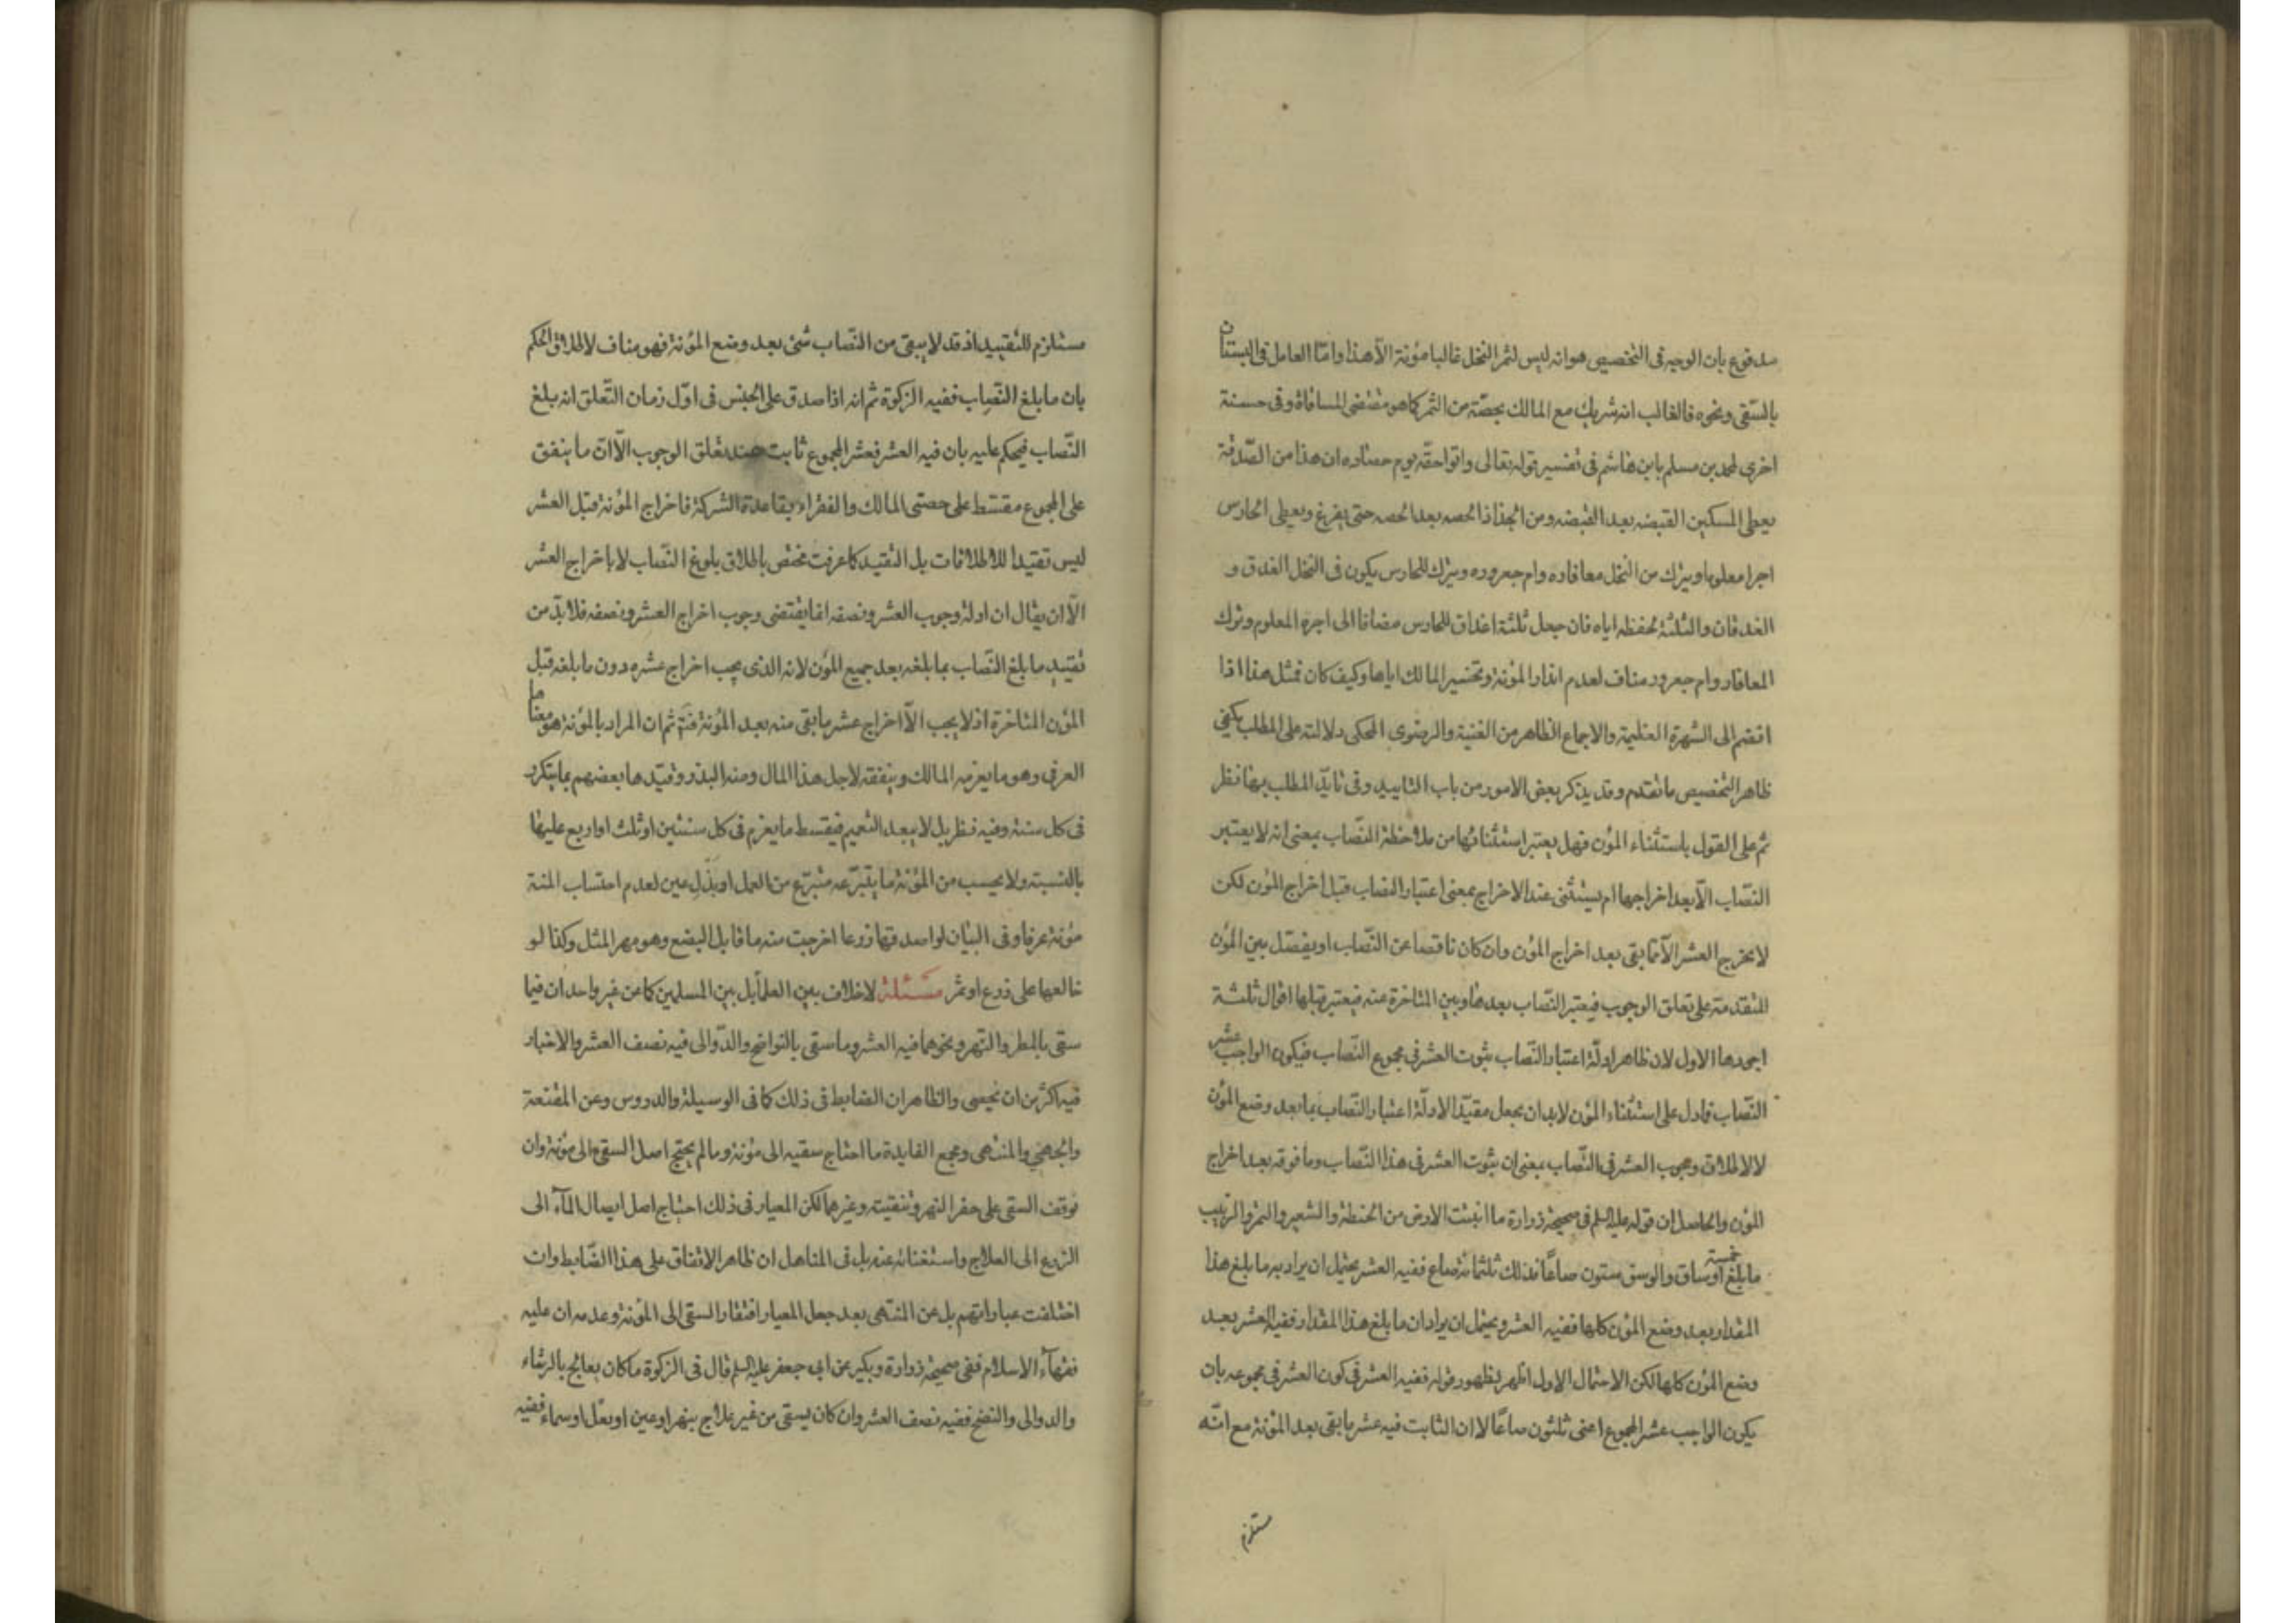 مدفوع بان الوجه فى التخصيص هو انه ليس لثمر النخل غالبا مؤنة الّا هذا واما العامل فى البستان
بالسّقى ونحوه فالغالب انه شريك مع المالك بحصّة من الثمر كما هو مقتضى المساقاة وفى حسنة
اخرى لمحمد بن مسلم بابن هاشم فى تفسير قوله تعالى واتوا حقّه يوم حصاده ان هذا من الصّدقة
يعطى المسكين القبضه بعد القبضه ومن الجذاذ الحصه بعد الحصه حتى يفرغ ويعطى الحارس
اجرا معلوما ويترك من النخل معافاره وام جعروره ويترك للحارس يكون فى النخل الغدق و
الغدقان والثلثة لحفظه اياه فان جعل ثلثة اغداق للحارس مضافا الى اجره المعلوم وترك
المعافار وام جعرور مناف لعدم انذار المؤنة وتخسير المالك اياها وكيف كان فمثل هذا اذا
انضم الى الشهرة العظيمة والاجماع الظاهر من الغنية والرضوى المحكى دلالته على المطلب يكفى
ظاهر التخصيص ما تقدم وقد يذكر بعض الامور من باب التاييد وفى تايّد المطلب بها نظر
ثم على القول باستثناء المؤن فهل يعتبر استثناؤها من ملاحظة النصّاب بمعنى انه لا يعتبر
النصّاب الّا بعد اخراجها ام يستثنى عند الاخراج بمعنى اعتبار النصاب قبل اخراج المؤن لكن
لا يخرج العشر الّا مما بقى بعد اخراج المؤن وان كان ناقصا عن النصّاب او يفصّل بين المؤن
المتقدمة على تعلق الوجوب فيعتبر النصّاب بعدها وبين المتاخرة عنه فيعتبر قبلها اقوال ثلثة
اجودها الاول لان ظاهر ادلّة اعتبار النصّاب ثبوت العشر فى مجموع النصّاب فيكون الواجب عشر
النصّاب فما دل على استثناء المؤن لابد ان يجعل مقيّدا لادلّة اعتبار النصّاب بما بعد وضع المؤن
لا لاطلاق وجوب العشر فى النصّاب بمعنى ان ثبوت العشر فى هذا النصّاب وما فوقه بعد اخراج
المؤن والحاصل ان قوله عليه السلم فى صحيحة زرارة ما انبتت الارض من الحنطة والشعير والتمر والزبيب
ما بلغ خمسة اوساق والوسق ستون صاعًا فذلك ثلثمائة صاع ففيه العشر يحتمل ان يراد به ما بلغ هذا
المقدار بعد وضع المؤن كلها ففيه العشر ويحتمل ان يراد ان ما بلغ هذا المقدار ففيه العشر بعد
وضع المؤن كلها لكن الاحتمال الاول اظهر بظهور قوله ففيه العشر فى كون العشر فى مجموعه بان
يكون الواجب عشر المجموع اعنى ثلثون صاعًا لا ان الثابت فيه عشر ما بقى بعد المؤنة مع انّه
مستلزم
مستلزم للتقييد اذ قد لا يبقى من النصّاب شئ بعد وضع المؤنة فهو مناف لاطلاق الحكم
بان ما بلغ النصّاب ففيه الزكوة ثم انه اذا صدق على الجنس فى اوّل زمان التّعلق انه بلغ
النصّاب فيحكم عليه بان فيه العشر فعشر المجموع ثابت عند تعلق الوجوب الّا ان ما ينفق
على المجموع مقسّط على حصتى المالك والفقراء بقاعدة الشركة فاخراج المؤنة قبل العشر
ليس تقييدا للاطلاقات بل التقييد كما عرفت مختص باطلاق بلوغ النصّاب لا باخراج العشر
الّا ان يقال ان ادلة وجوب العشر ونصفه انما يقتضى وجوب اخراج العشر ونصفه فلا بدّ من
تقييد ما بلغ النصّاب بما بلغه بعد جميع المؤن لانه الذى يجب اخراج عشره دون ما بلغه قبل
المؤن المتاخرة اذ لا يجب الّا اخراج عشر ما بقى منه بعد المؤنة فتم ثم ان المراد بالمؤنة هو معناها
العرفى وهو ما يغرمه المالك وينفقه لاجل هذا المال ومنه البذر وقيّدها بعضهم بما يتكرر
فى كل سنة وفيه نظر بل لا يبعد التعميم فيقسط ما يغرم فى كل سنتين او ثلث او اربع عليها
بالنسبة ولا يحسب من المؤنة ما يتبرّعه متبرّع من العمل او بذل عين لعدم احتساب المنة
مؤنة عرفا وفى البيان لو اصدقها زرعا اخرجت منه ما قابل البضع وهو مهر المثل وكذا لو
خالعها على زرع او ثمر مسئلة لا خلاف بين العلما بل بين المسلمين كما عن غير واحد ان فيما
سقى بالمطر والنهر ونحوهما فيه العشر وما سقى بالنواضح والدّوالى فيه نصف العشر والاخبار
فيه اكثر من ان تحصى والظاهر ان الضابط فى ذلك كما فى الوسيلة والدروس وعن المقنعة
والمنتهى ومجمع الفايدة ما احتاج سقيه الى مؤنة وما لم يحتج اصل السقى الى مؤنة وان
توقف السقى على حفر النهر وتنقيته وغيرهما لكن المعيار فى ذلك احتياج اصل ايصال المآء الى
الزرع الى العلاج واستغنائه عنه بل فى المناهل ان ظاهر الاتفاق على هذا الضّابط وان
اختلفت عباراتهم بل عن المنتهى بعد جعل المعيار افتقار السقى الى المؤنة وعدمه ان عليه
فقهآء الاسلام ففى صحيحة زرارة وبكير عن ابى جعفر عليه السلم قال فى الزكوة ما كان يعالج بالرشاء
والدوالى والنضح ففيه نصف العشر وان كان يسقى من غير علاج بنهر او عين او بعل او سماء ففيه